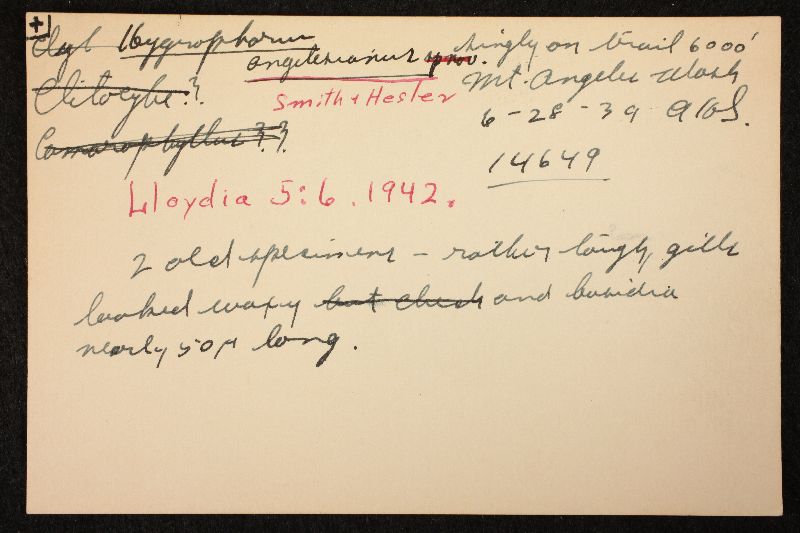 +
Hygrophorus
angelesianus sp nov. singly on trail 6000'
Clitocybe?? Mt. Angeles Wash
Smith & Hesler
6-28-39 AHS.
Camarophyllus??
14649
Lloydia 5:6. 1942.
2 old specimens - rather tough, gills
looked waxy but check and basidia
nearly 50μ long.